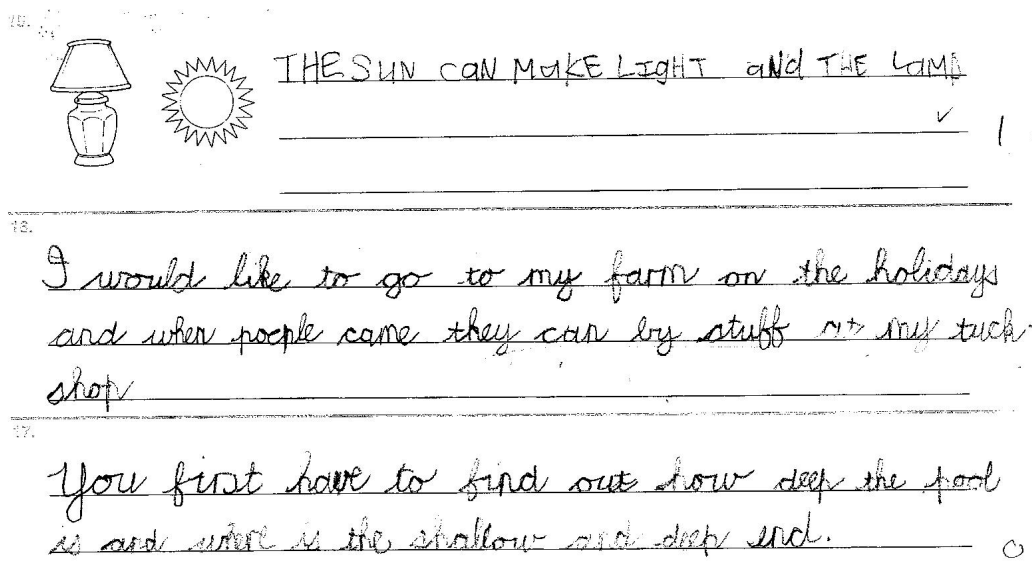 THE SUN CAN MAKE LIGHT aNd THE LAMP
✓ 1
13.
I would like to go to my farm on the holidays
and when poeple came they can by stuff at my tuck
shop
17.
You first have to find out how deep the pool
is and where is the shallow and deep end.
0